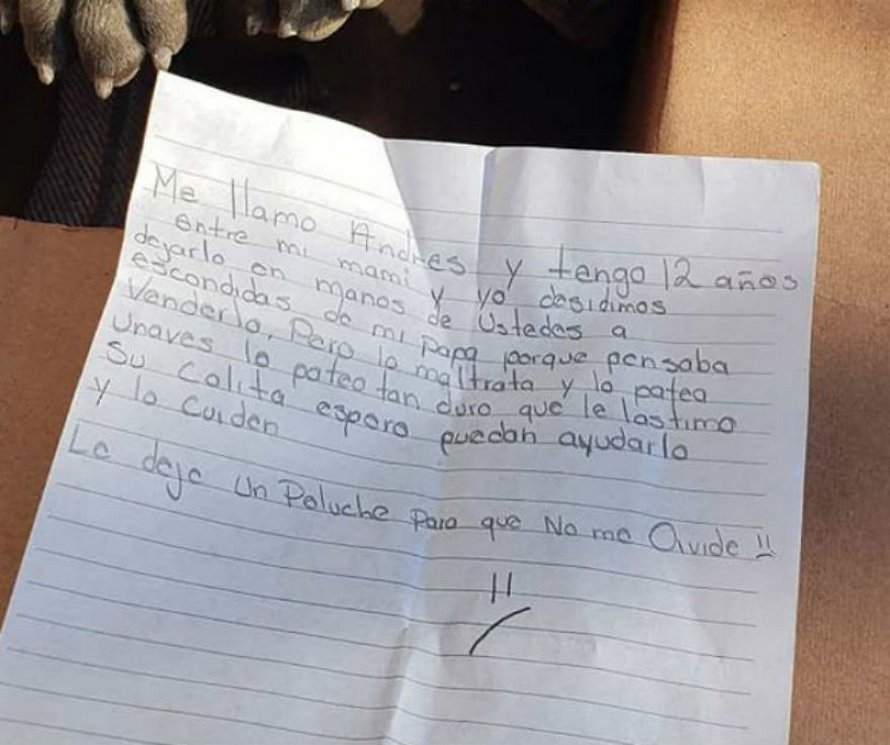 Me llamo Andres y tengo 12 años
entre mi mami y yo desidimos
dejarlo en manos de Ustedes a
escondidas de mi papa porque pensaba
Venderlo, Pero lo maltrata y lo patea
Unaves lo pateo tan duro que le lastimo
Su Colita espero puedan ayudarlo
y lo Cuiden
Le deje Un Peluche Para que No me Olvide !!